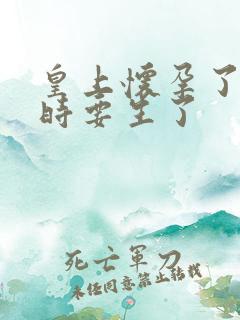 皇上怀孕了
时要生了
死亡军刀
未经同意禁止转载